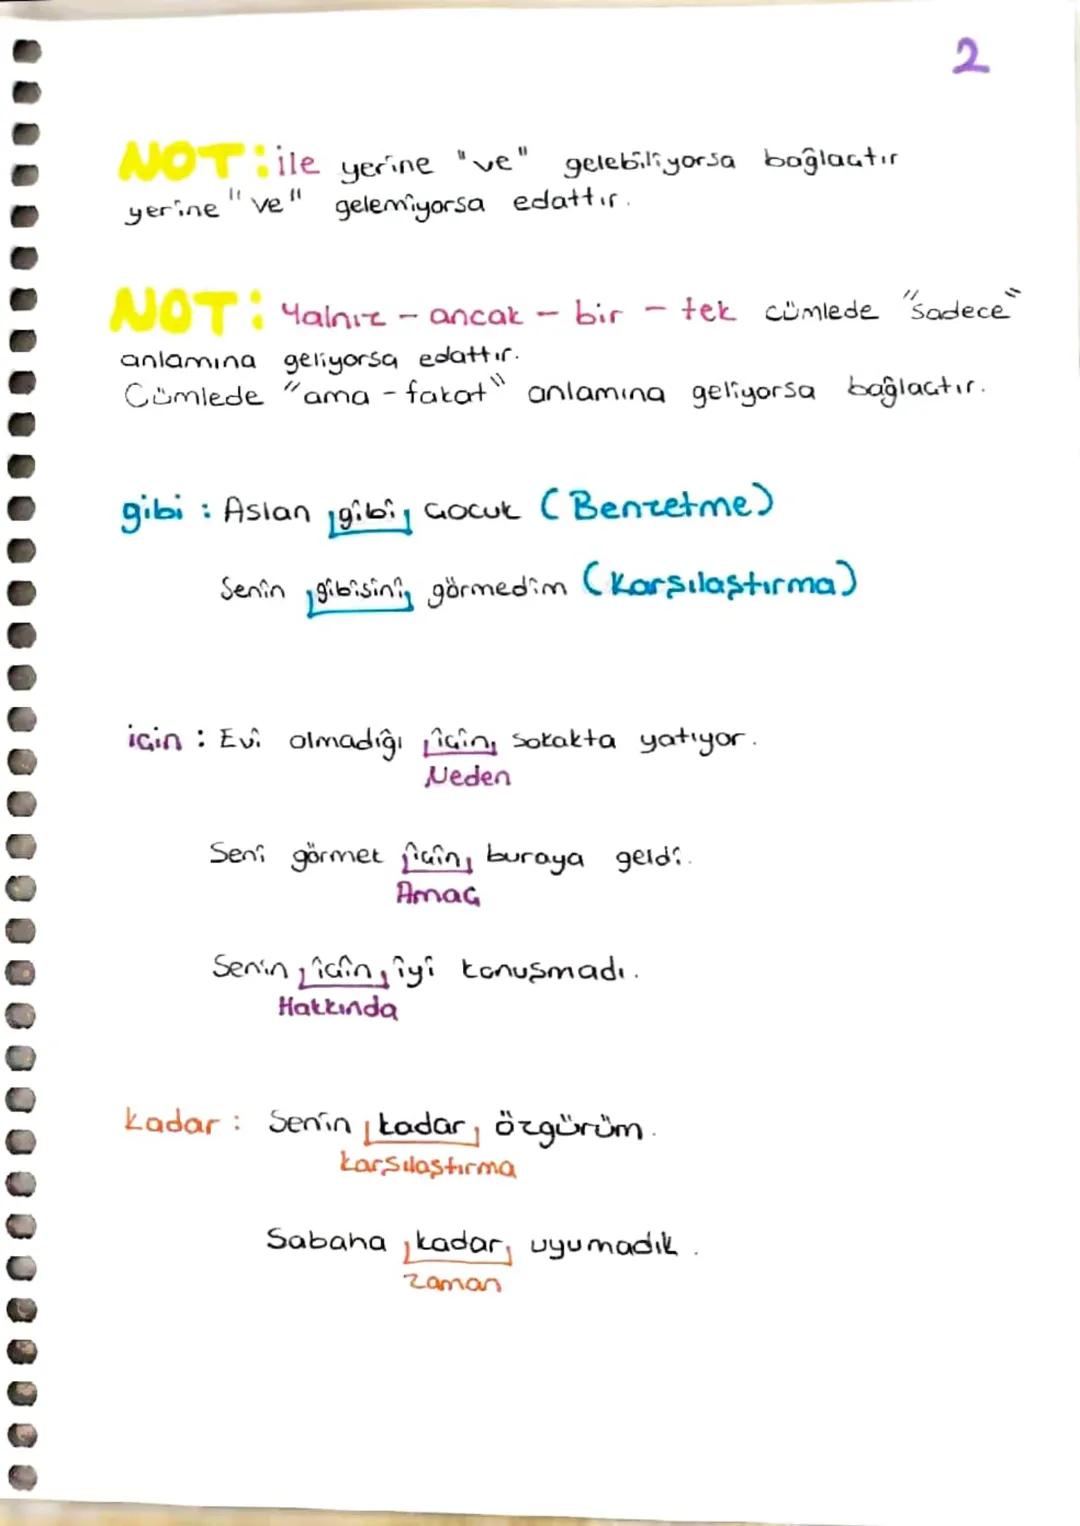 2
NOT: ile yerine "ve" gelebiliyorsa bağlaçtır
yerine "ve" gelemiyorsa edattır.
NOT: Yalnız - ancak - bir - tek cümlede "sadece"
anlamına geliyorsa edattır.
Cümlede "ama - fakat" anlamına geliyorsa bağlaçtır.
gibi : Aslan gibi çocuk (Benzetme)
Senin gibisini görmedim (Karşılaştırma)
için : Evi olmadığı için sokakta yatıyor.
Neden
Seni görmek için buraya geldi.
Amaç
Senin için iyi konuşmadı.
Hakkında
kadar : Senin kadar özgürüm.
karşılaştırma
Sabaha kadar uyumadık.
zaman